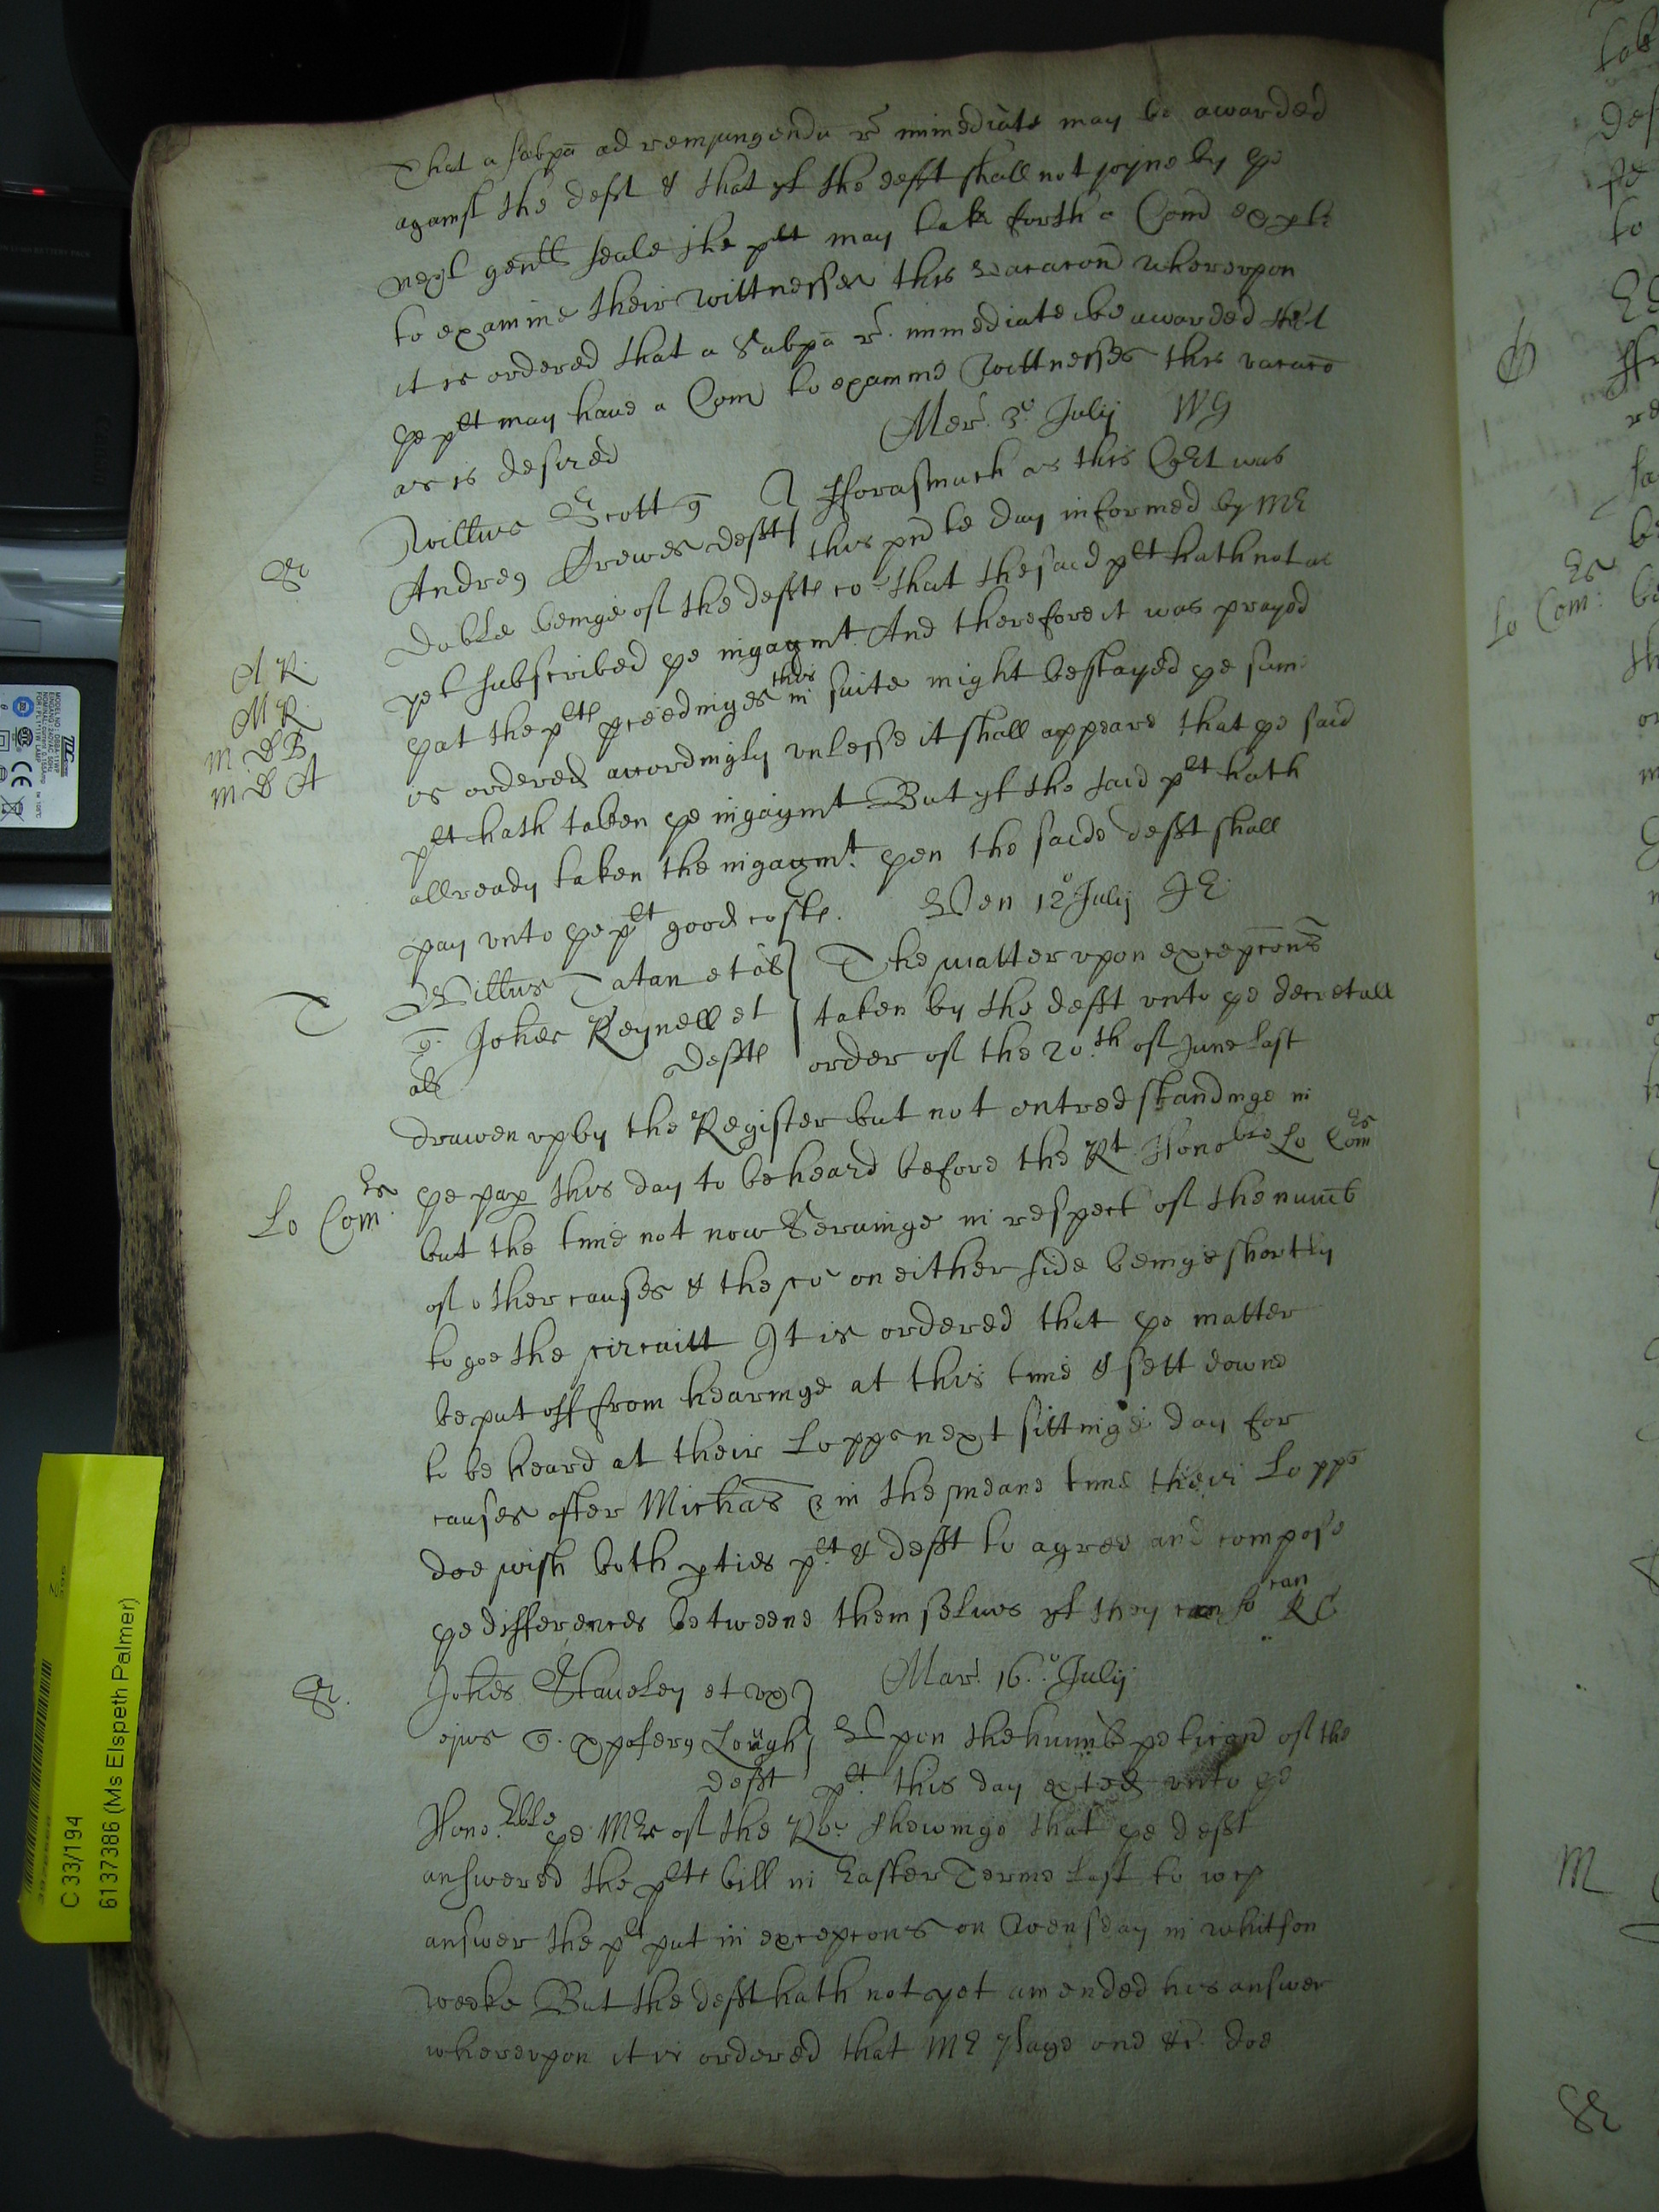 That a subpa ad reiungendu rē immediate may be awarded
against the defft & that yf the defft shall not joyne by ye
next genll seale the plt may take forth a Com ex pte
to examine their wittnesses this vacacon whereupon
it is ordered that a Subpa rē immediate be awarded & that
ye plt may have a Com to examine Wittnesses this vacacō
as is desired
Mer. 3o Julij WG
Willus Scott q Forasmuch as this Cort was
Andreas Drewes defft this pnte day informed by Mr
Doble beinge of the deffts co that the said plt hath not as
yet subscribed ye ingagmt And therefore it was prayed
yat the plts pceedinges in this suite might be stayed ye same
is ordered accordingly unlesse it shall appeare that ye said
plt hath taken ye ingagmt But yf the said plt hath
allready taken the ingagmt yen the saide defft shall
pay unto ye plt good costs. Ven 12o Julij JE
A R
M R
m D B
m D A
T
Willus Tatan et als The matter upon excepcons
q. Johes Reynell et taken by the defft unto ye decretall
als deffts order of the 20th of June last
drawen up by the Register but not entred standinge in
Lo Comrs
ye pap this day to be heard before the Rt Honoble Lo Comrs
but the time not now Servinge in respect of the numb
of other causes & the co on either side beinge shortly
to goe the circuitt It is ordered that ye matter
be put off from hearinge at this time & sett downe
to be heard at their Lopps next sittinge day for
causes after Michas & in the meane time their Lopps
doe wish both pties plt & defft to agree and compose
ye differences betweene themselves yf they can so RC
can
Mar. 16o Julij
Johes Staveley et ux
ejus q. Xpoferus Lough Upon the humb peticion of the
defft plt this day exted unto ye
Honorable ye Mr of the Rolls shewinge that ye defft
answered the plts bill in Easter Terme last to wch
answer the plt put in excepcons on Wensday in whitson
weeke But the defft hath not yet amended his answer
whereupon it is ordered that Mr Page one &c. doe
C 33/194
6137386 (Ms Elspeth Palmer)